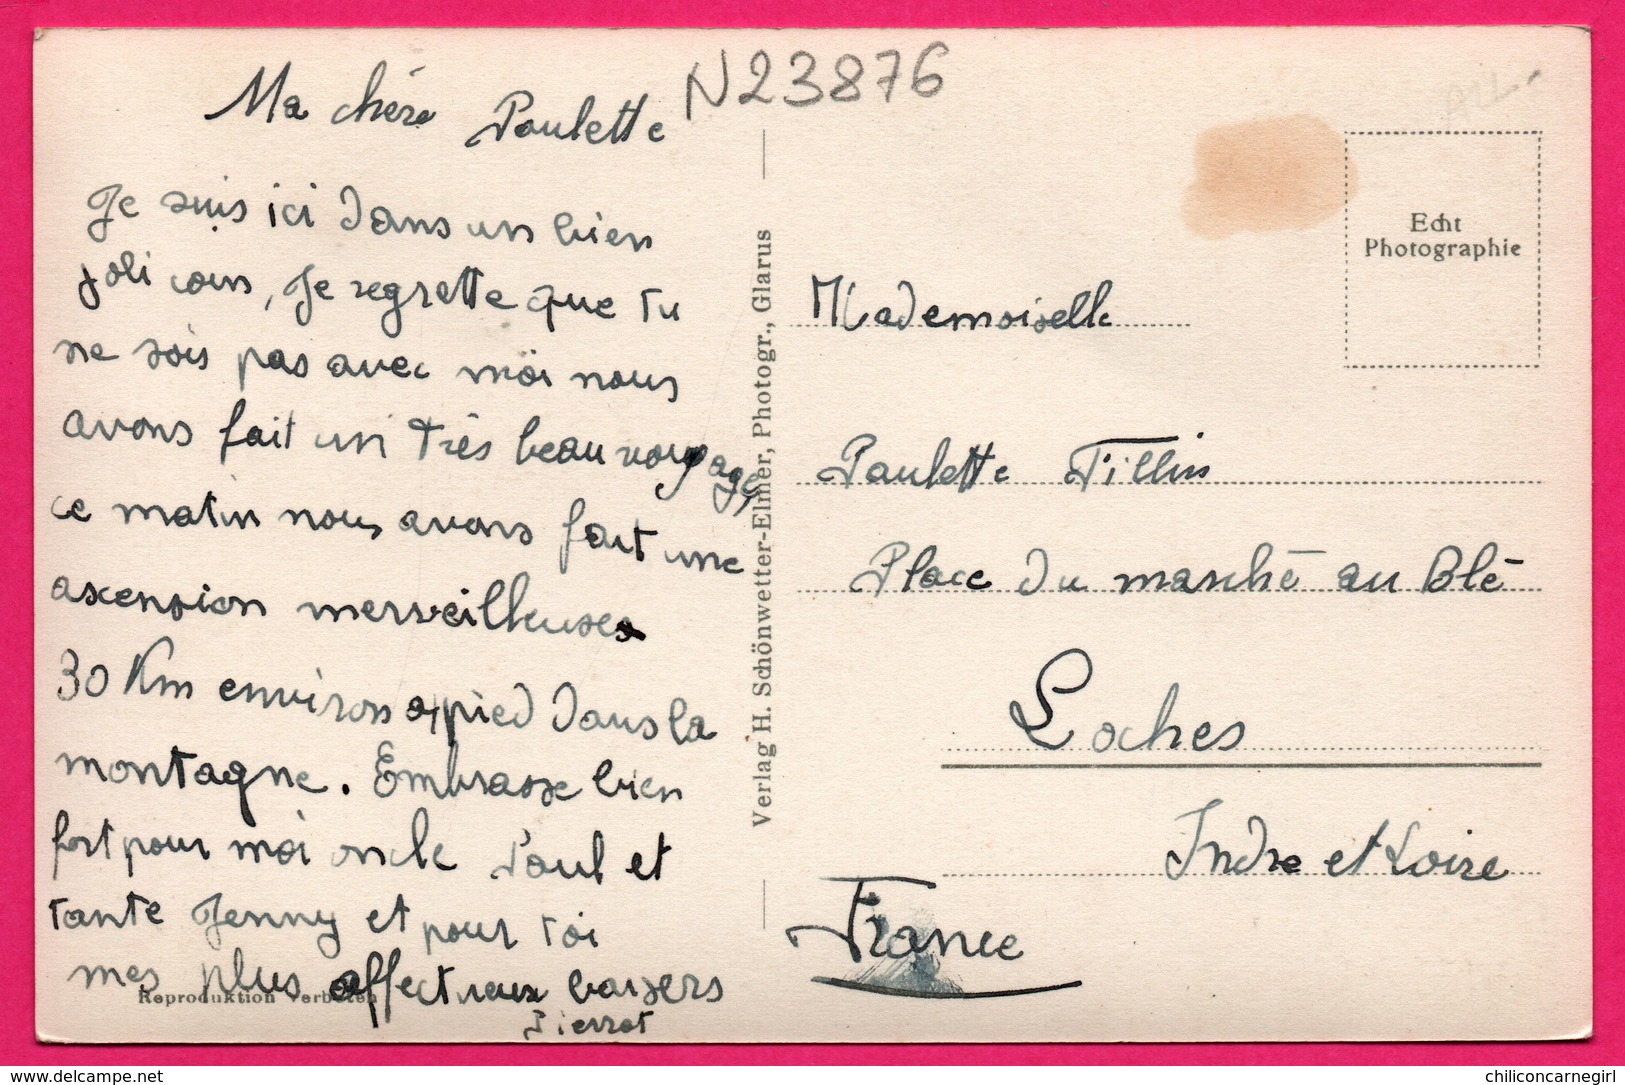 N23876
ALL.
Ma chère Paulette
Je suis ici dans un bien
joli coin, Je regrette que tu
ne sois pas avec moi nous
avons fait un très beau voyage,
ce matin nous avons fait une
ascension merveilleuse
30 Km environ à pied dans la
montagne. Embrasse bien
fort pour moi oncle Paul et
tante Jenny et pour toi
mes plus affectueux baisers
Pierrot
Reproduktion verboten
Verlag H. Schönwetter-Elmer, Photogr., Glarus
Echt
Photographie
Mademoiselle
Paulette Tillin
Place du marché au Blé
Loches
Indre et Loire
France
delcampe.net
chiliconcarnegirl